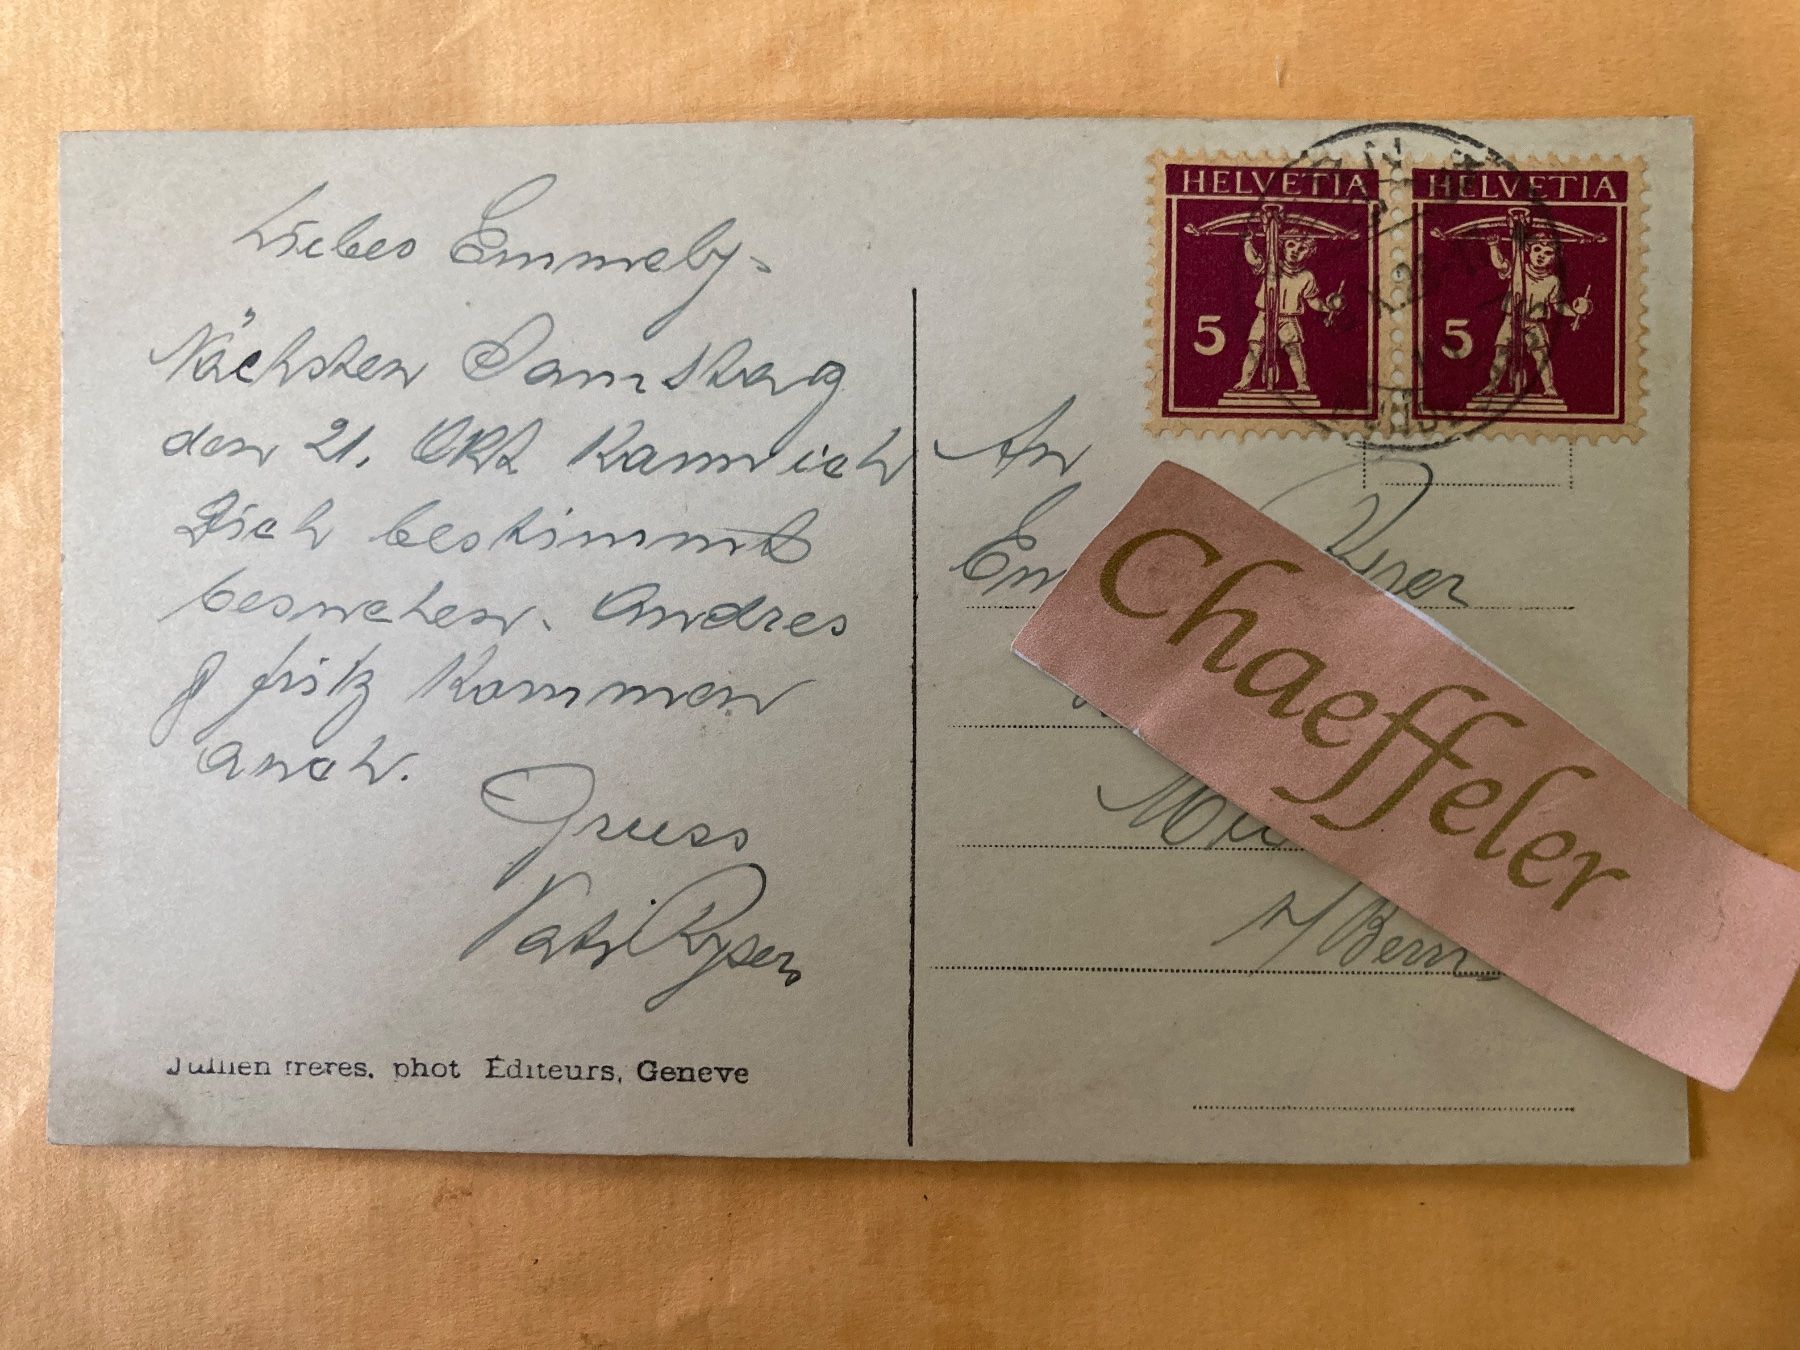 Liebes Emmely.
Nächsten Samstag
den 21. Okt kann ich
Dich bestimmt
besuchen. Andres
& fritz kommen
auch.
Gruss
Vati Ryser
Jullien freres, phot Éditeurs, Geneve
HELVETIA HELVETIA
5 5
An
b/Bern
Chaeffeler